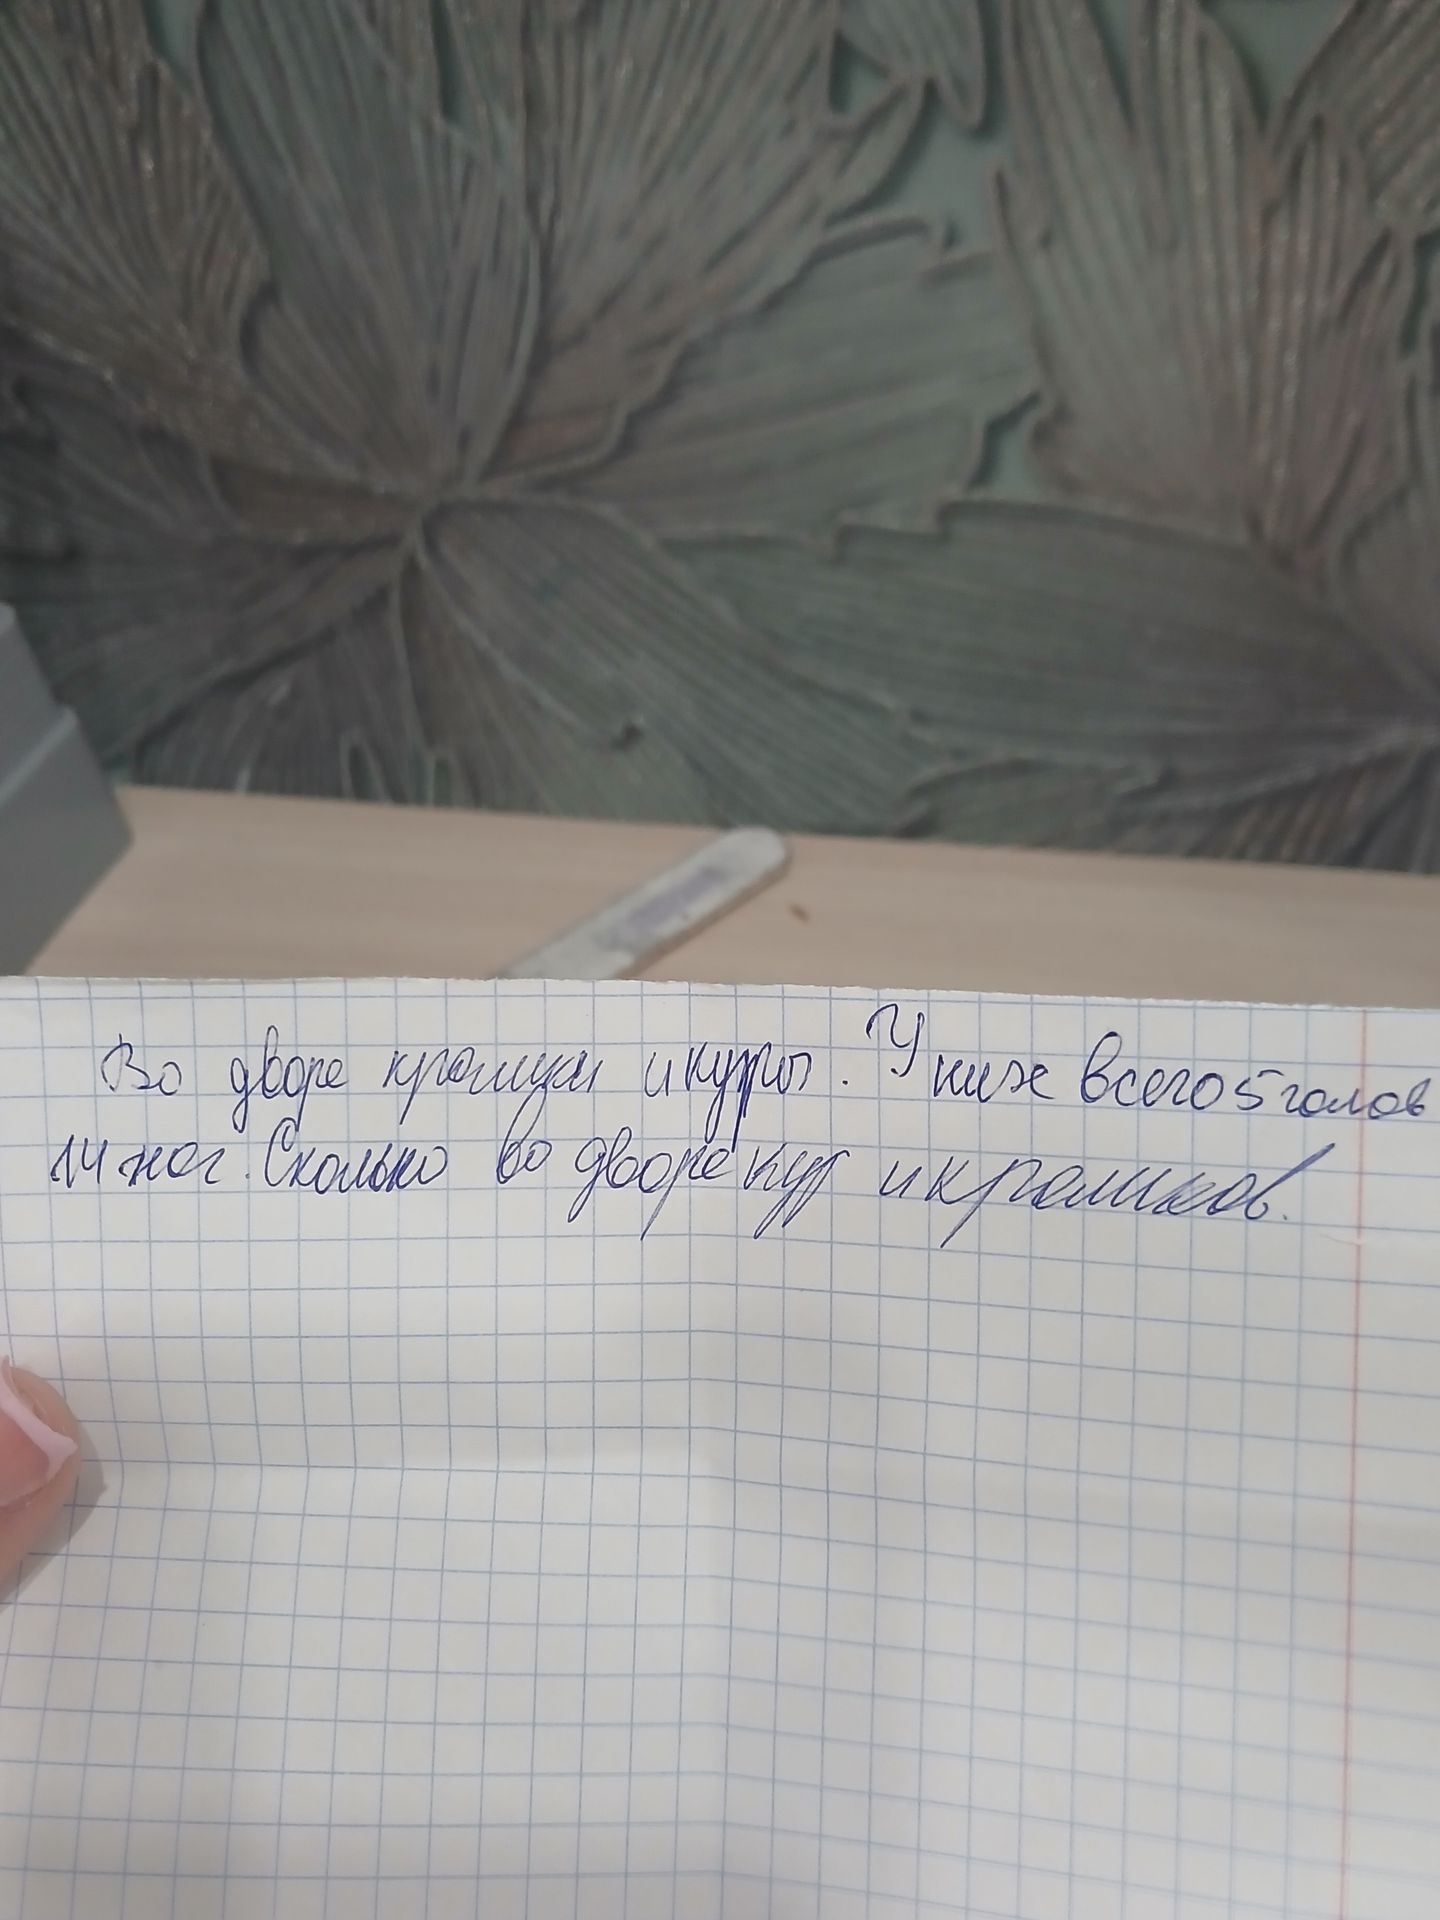 Во дворе кролики и куры. У них всего 5 голов
14 ног. Сколько во дворе кур и кроликов.